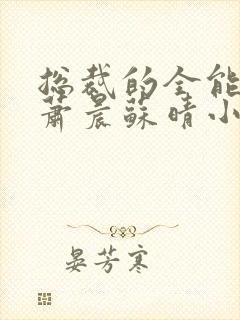 总裁的全能
萧晨苏晴小
晏芳寒